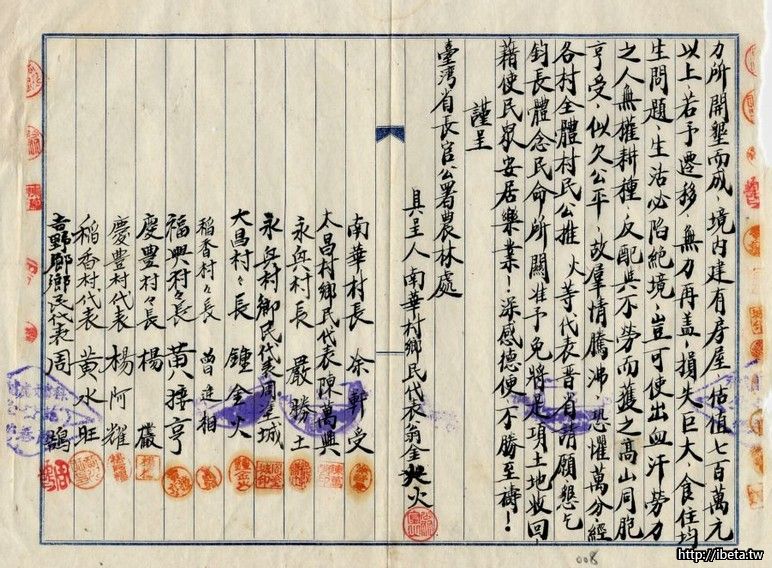 力所開墾而成、境內建有房屋估值七百萬元
以上、若予遷移、無力再蓋、損失巨大、食住均
生問題、生活必陷絕境、豈可使出血汗勞力
之人無權耕種、反配與不勞而獲之高山同胞
享受、似欠公平、故羣情騰沸、恐懼萬分經
各村全體村民公推 火等代表晋省請願、懇乞
鈞長體念民命所關准予免將是項土地收回
藉使民眾安居樂業！深感德便、不勝至禱！
謹呈
臺灣省長官公署農林處
具呈人南華村鄉民代表翁金火
南華村長 余軒受
太昌村鄉民代表陳萬興
永興村長 嚴勝土
永興村鄉民代表周法城
大昌村々長 鍾金火
稻香村々長 曾連相
福興村々長 黃接亨
慶豐村々長 楊巖
慶豐村代表 楊阿耀
稻香村代表 黃水旺
吉野鄉鄉民代表 周鵠
008
http://ibeta.tw